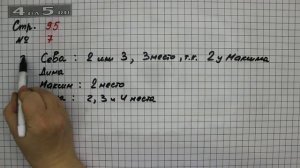 4 АБ 5.ru
Стр. 95
№ 7
Сева : 2 или 3 , 3 место , т.к. 2 у Максима
Дима
Максим : 2 место
: 2, 3 и 4 места